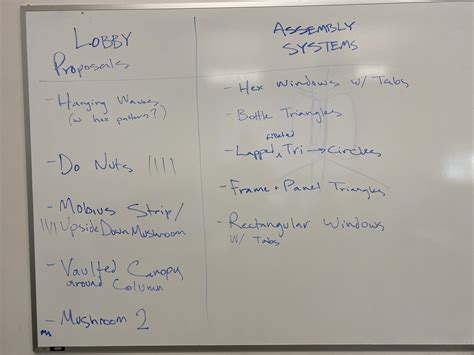 LOBBY
Proposals
- Hanging Waves
(w/ hex pattern?)
- Do Nuts ||||
- Mobius Strip/
||||Upside Down Mushroom
- Vaulted Canopy
around Column
- Mushroom 2
ASSEMBLY
SYSTEMS
- Hex Windows w/ Tabs
- Bottle Triangles
- Lapped, Tri → Circles
- Frame + Panel Triangles
- Rectangular Windows
w/ Tabs